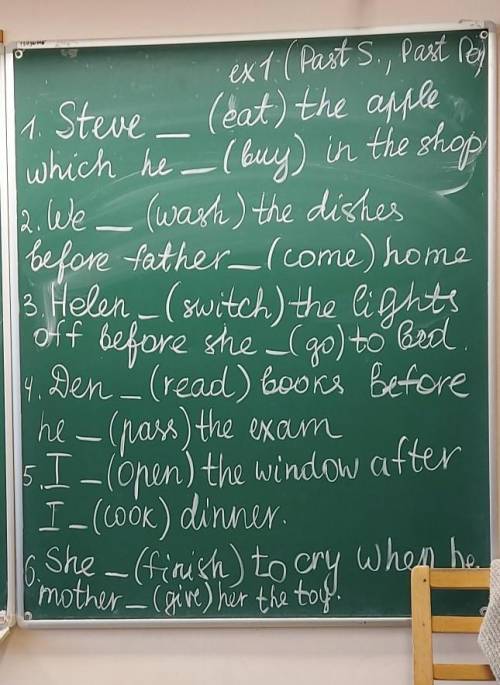 ex1 (Past S., Past Per
1. Steve _ (eat) the apple
which he _ (buy) in the shop
2. We _ (wash) the dishes
before father _ (come) home
3. Helen _ (switch) the lights
off before she _ (go) to bed.
4. Den _ (read) books before
he _ (pass) the exam
5. I _ (open) the window after
I _ (cook) dinner.
6. She _ (finish) to cry when he
mother _ (give) her the toy.